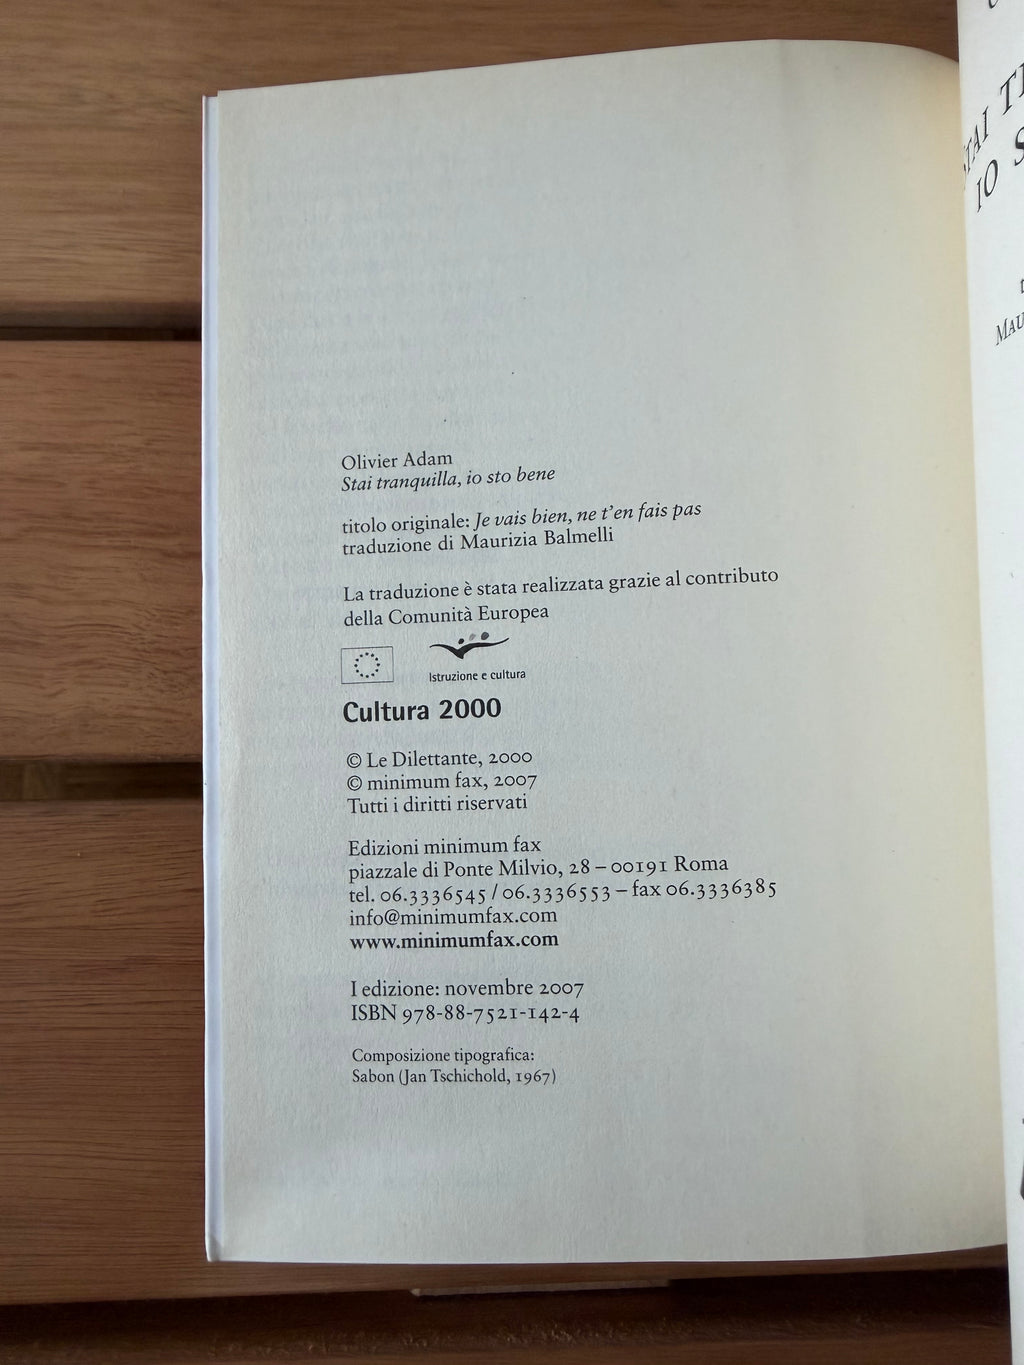 Olivier Adam
Stai tranquilla, io sto bene
titolo originale: Je vais bien, ne t'en fais pas
traduzione di Maurizia Balmelli
La traduzione è stata realizzata grazie al contributo
della Comunità Europea
Istruzione e cultura
Cultura 2000
© Le Dilettante, 2000
© minimum fax, 2007
Tutti i diritti riservati
Edizioni minimum fax
piazzale di Ponte Milvio, 28 – 00191 Roma
tel. 06.3336545 / 06.3336553 – fax 06.3336385
info@minimumfax.com
www.minimumfax.com
I edizione: novembre 2007
ISBN 978-88-7521-142-4
Composizione tipografica:
Sabon (Jan Tschichold, 1967)
IO